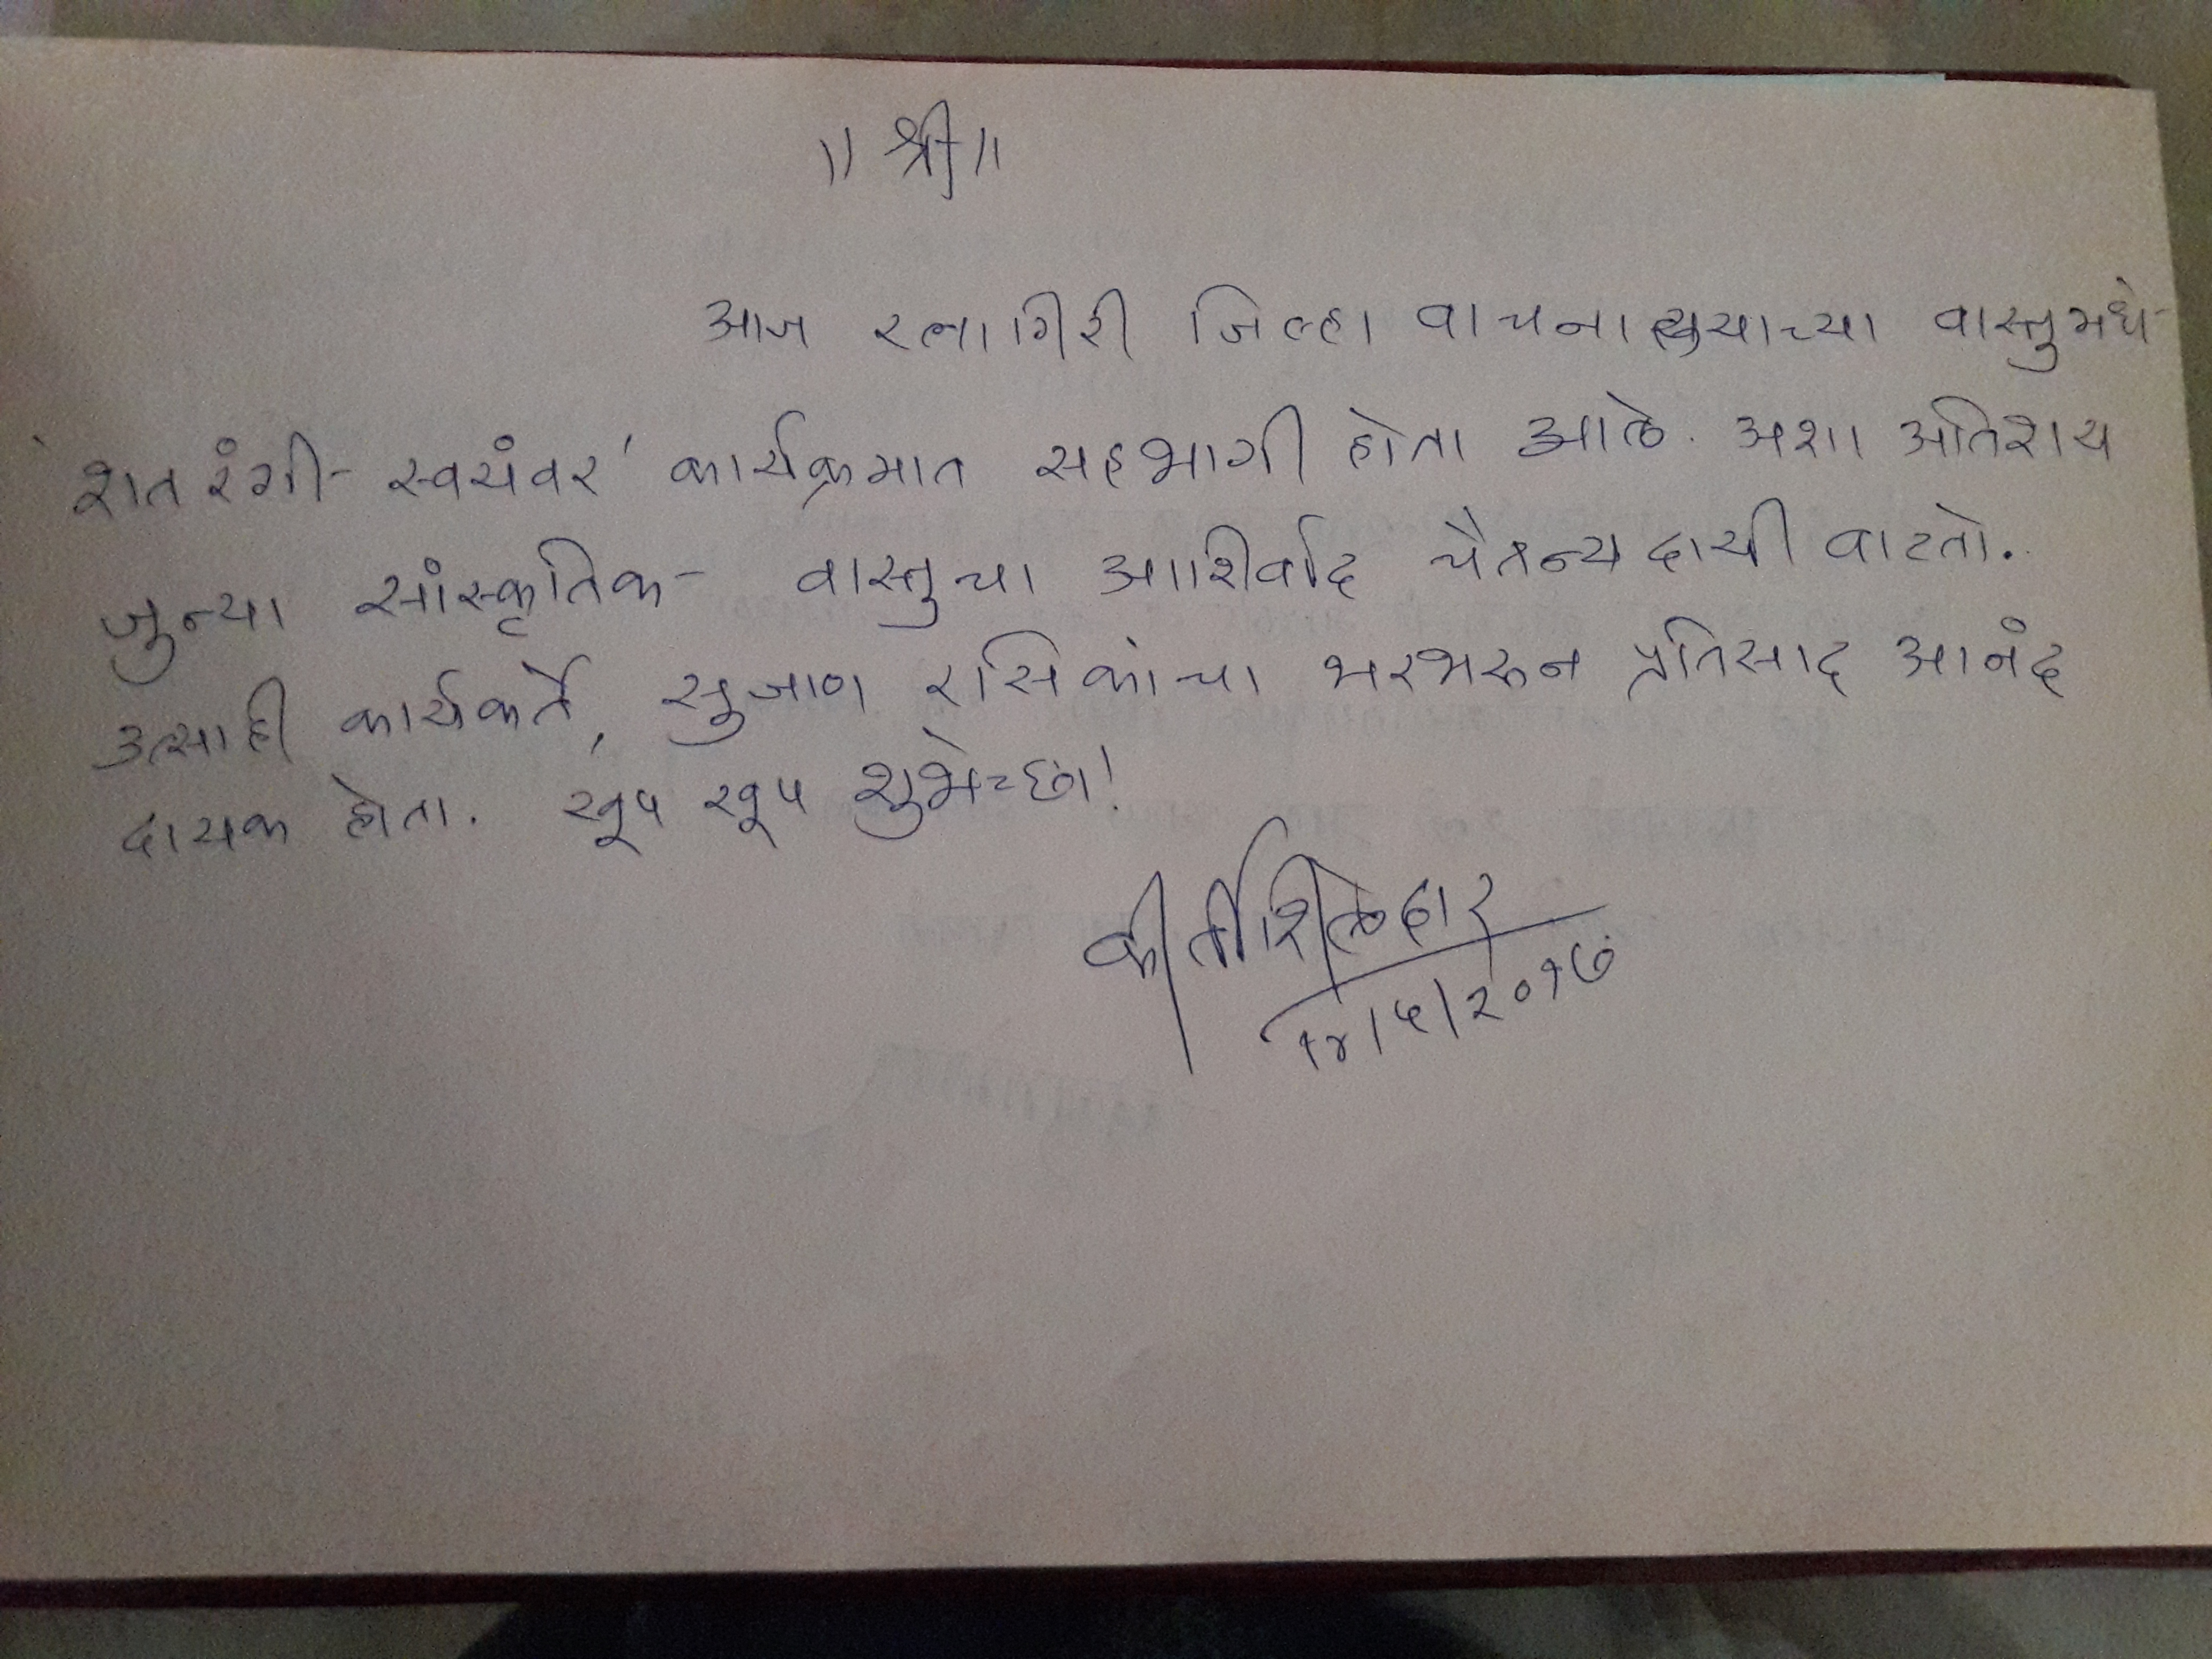 ॥ श्री ॥
आज रत्नागिरी जिल्हा वाचनालयाच्या वास्तुमधे
'शतरंगी स्वयंवर' कार्यक्रमात सहभागी होता आले. अशा अतिशय
जुन्या सांस्कृतिक वास्तुचा आशिर्वाद चैतन्यदायी वाटतो.
उत्साही कार्यकर्ते, सुजाण रसिकांचा भरभरून प्रतिसाद आनंद
दायक होता. खूप खूप शुभेच्छा!
कीर्ती शिलेदार
१४/५/२०१७